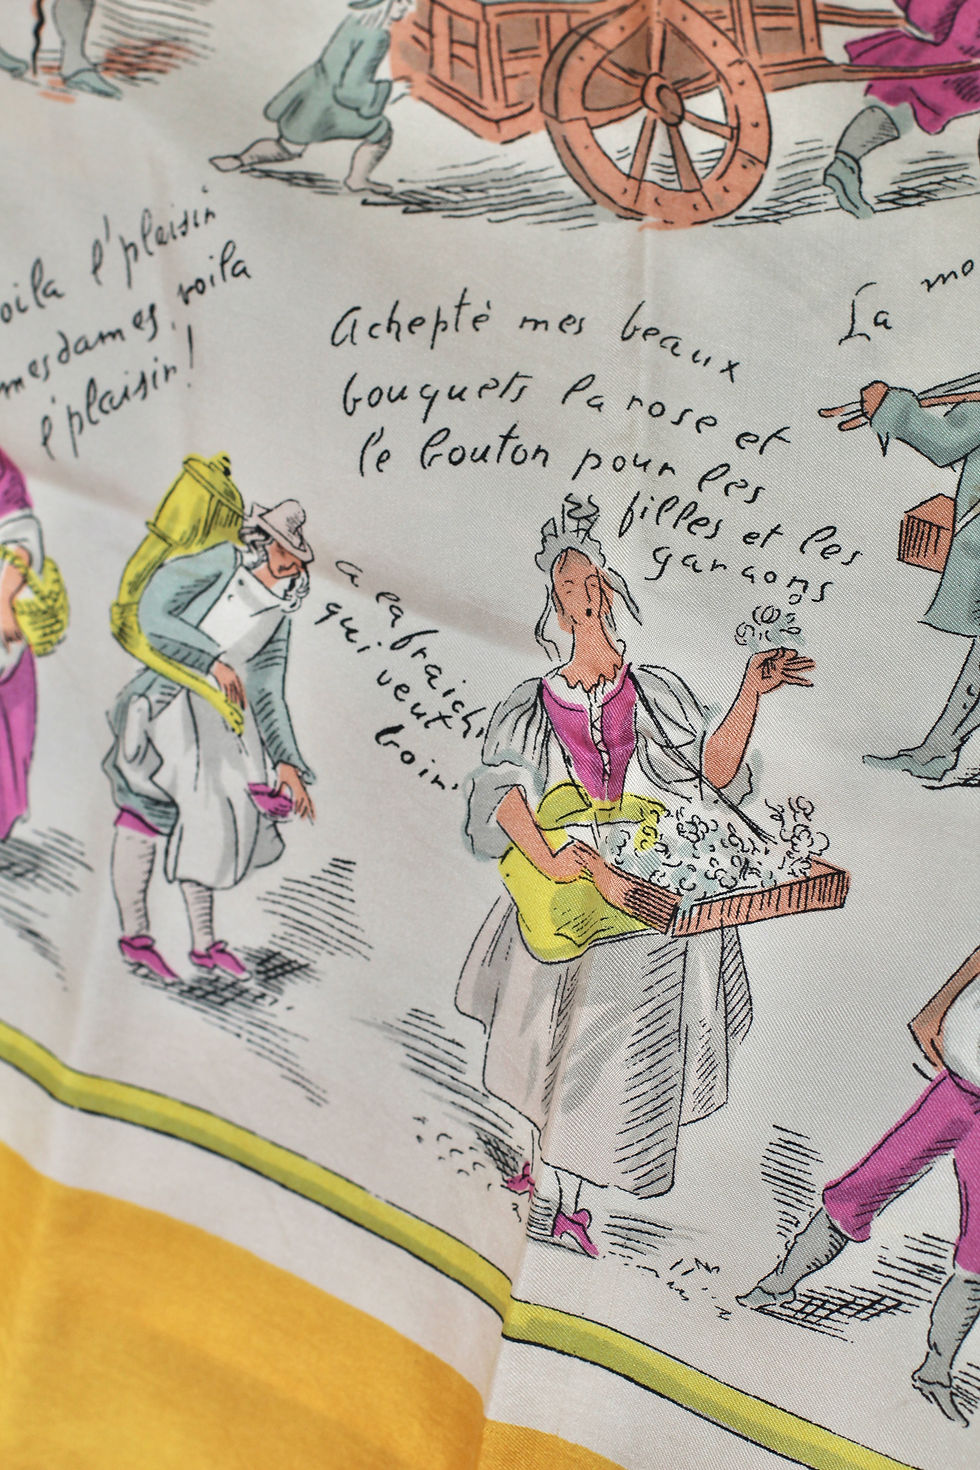 voila l'plaisir
mesdames, voila
l'plaisir!
Achepté mes beaux
bouquets la rose et
l'e bouton pour les
filles et les
garaons
La
a la fraich,
qui veut
boir.